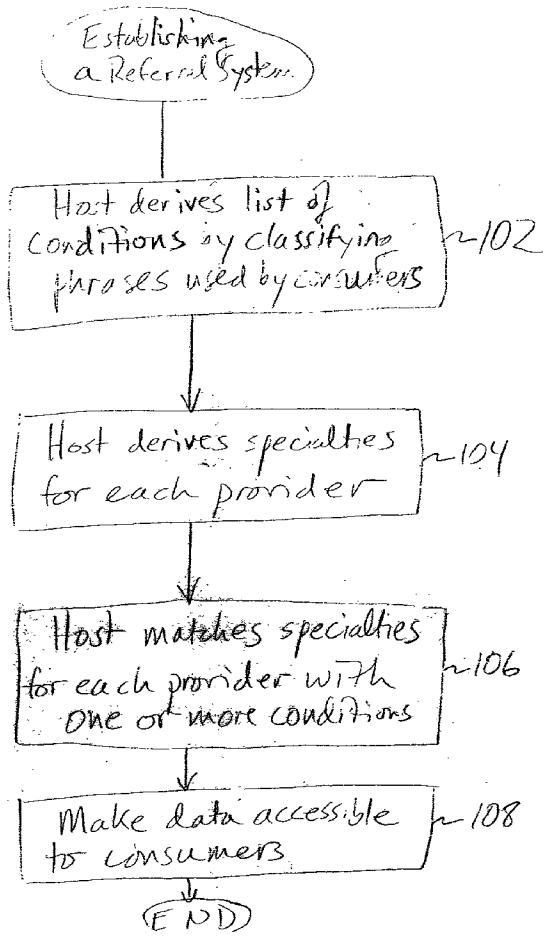 Establishing
a Referral System
Host derives list of
conditions by classifying
phrases used by consumers
~102
Host derives specialties
for each provider
~104
Host matches specialties
for each provider with
one or more conditions
~106
Make data accessible
to consumers
~108
END